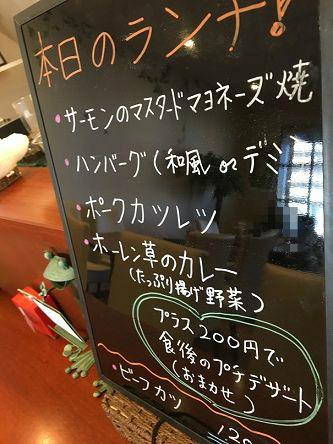 本日のランチ!
・サーモンのマスタードマヨネーズ焼
・ハンバーグ(和風 or デミ
・ポークカツレツ
・ホーレン草のカレー
(たっぷり揚げ野菜)
プラス200円で
食後のプチデザート
(おまかせ)
・ビーフカツ